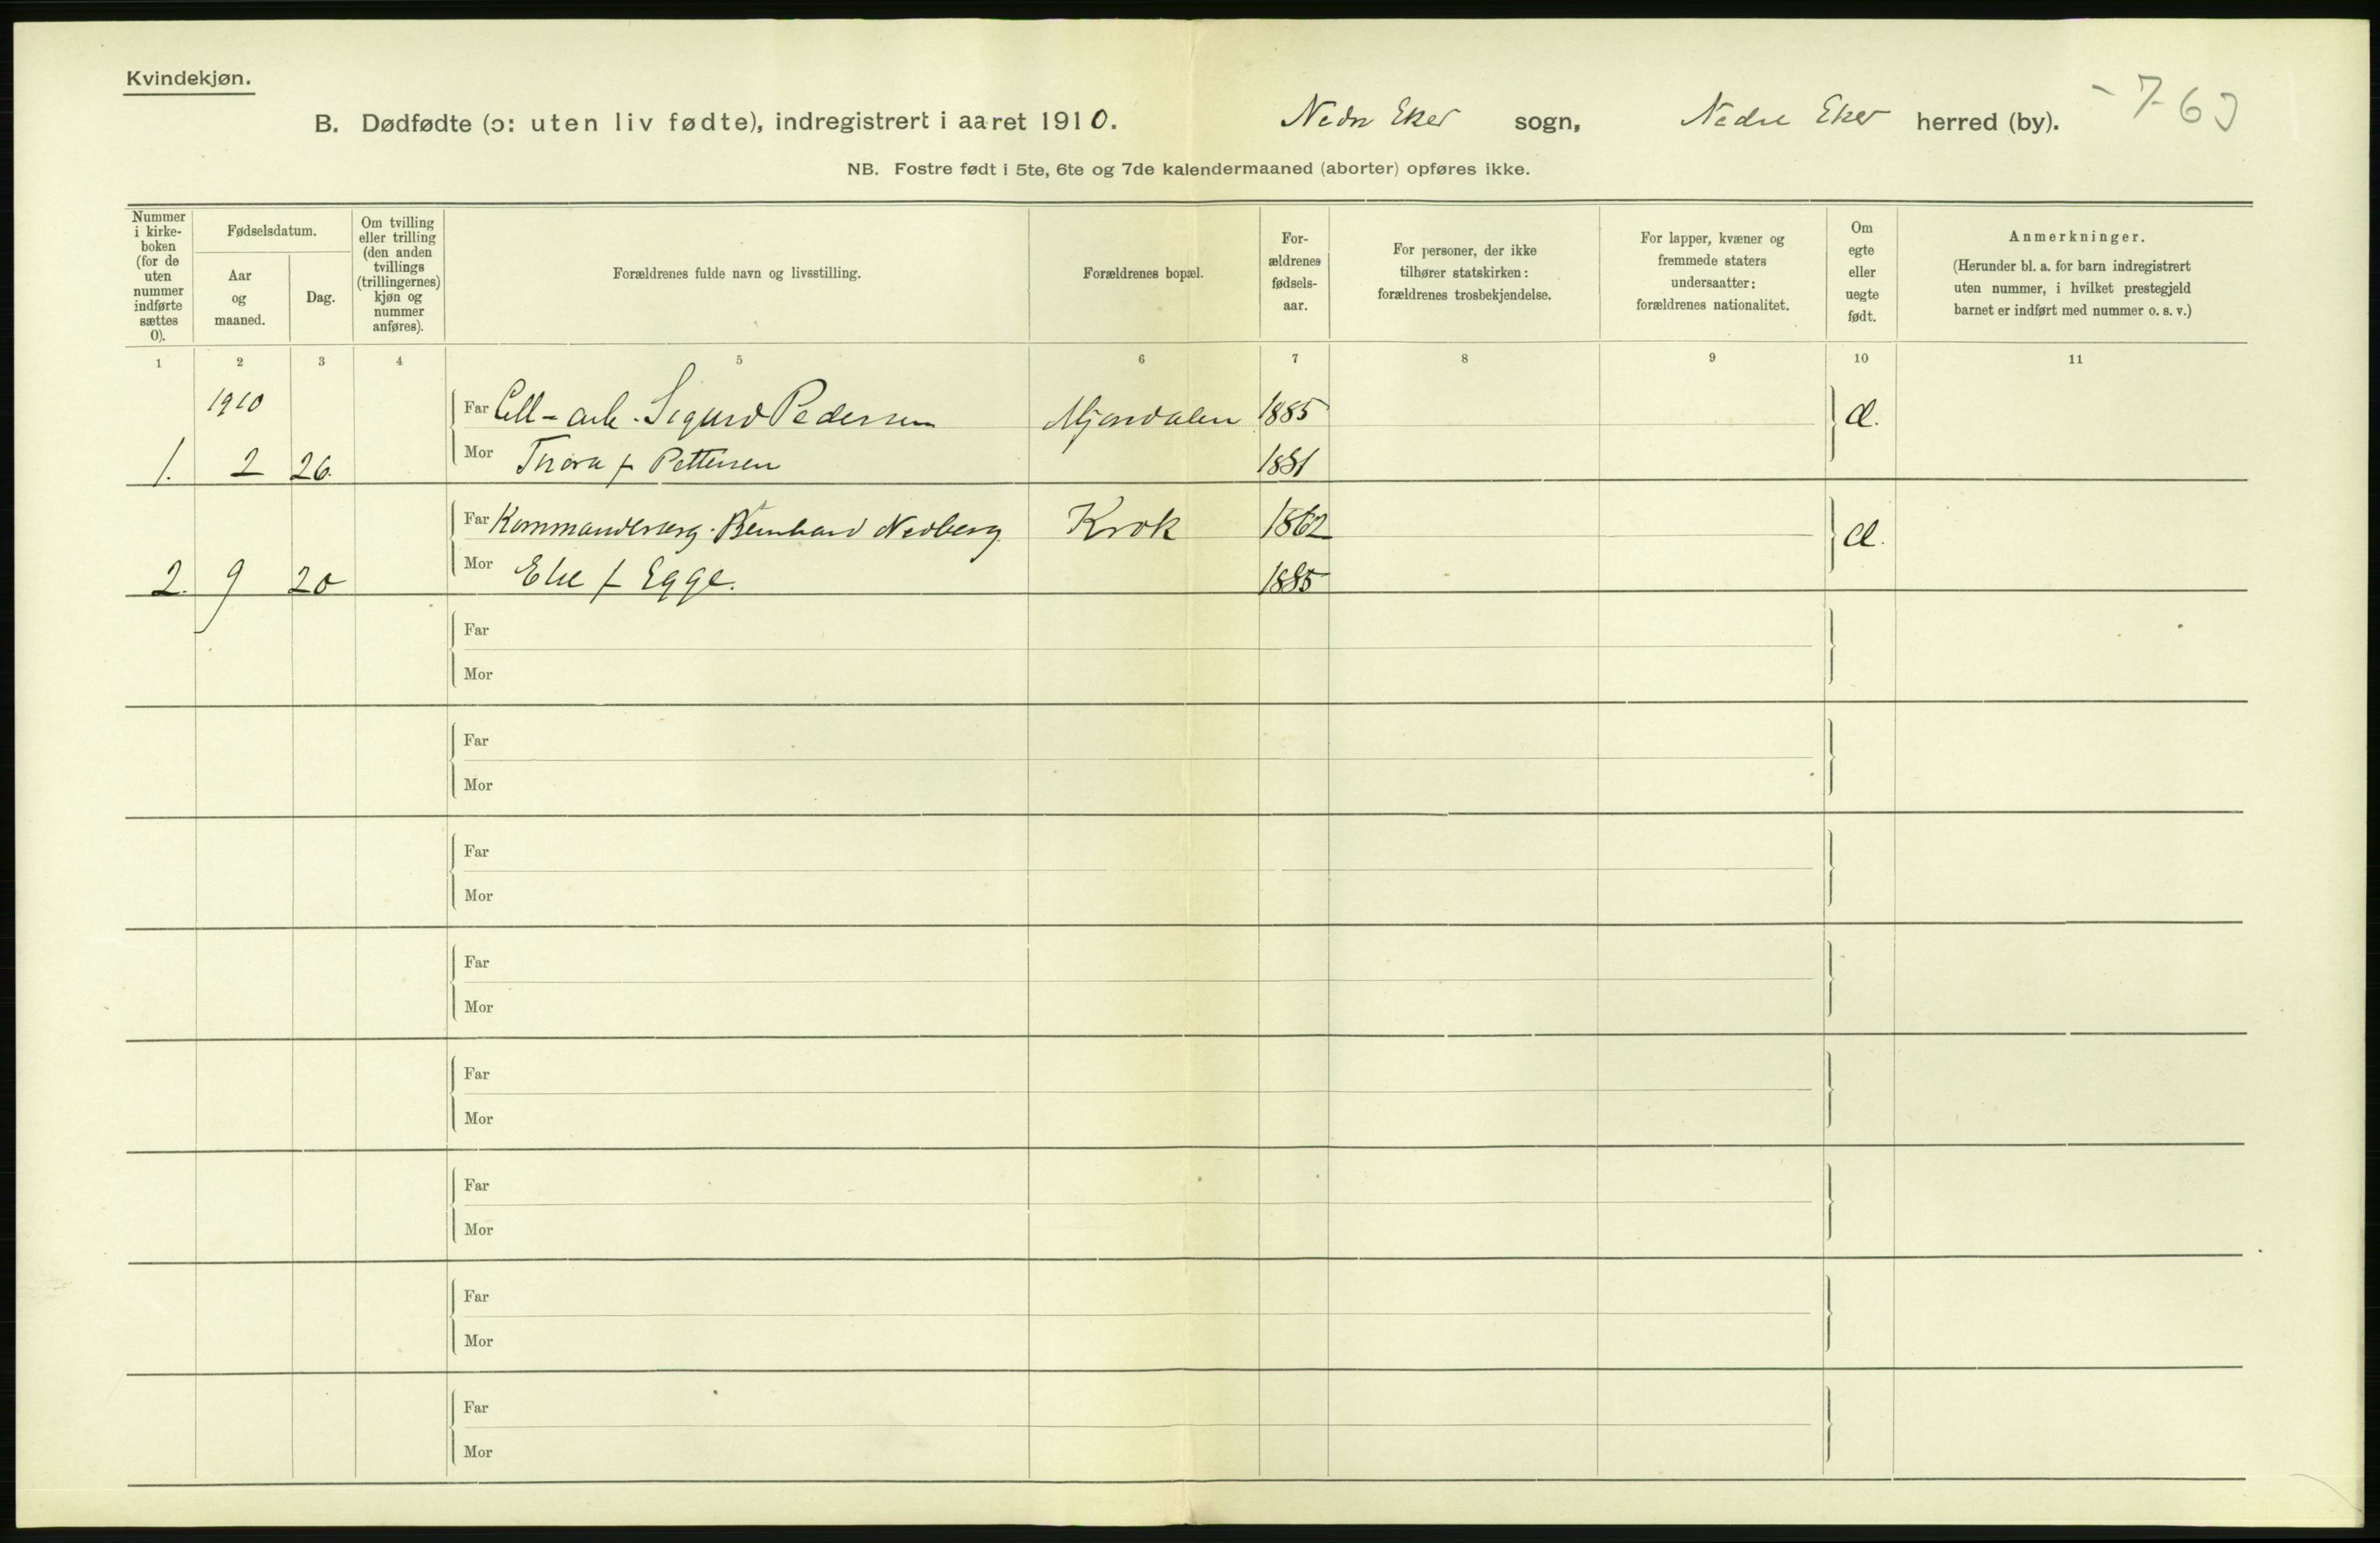 Kvindekjøn.
B. Dødfødte (ɔ: uten liv fødte), indregistrert i aaret 1910. Nedre Eker sogn, Nedre Eker herred (by).
NB. Fostre født i 5te, 6te og 7de kalendermaaned (aborter) opføres ikke.
Nummer i kirke-boken (for de uten nummer indførte sættes 0).
Fødselsdatum.
Aar og maaned.
Dag.
Om tvilling eller trilling (den anden tvillings (trillingernes) kjøn og nummer anføres).
Forældrenes fulde navn og livsstilling.
Forældrenes bopæl.
For-ældrenes fødsels-aar.
For personer, der ikke tilhører statskirken: forældrenes trosbekjendelse.
For lapper, kvæner og fremmede staters undersaatter: forældrenes nationalitet.
Om egte eller uegte født.
Anmerkninger.
(Herunder bl. a. for barn indregistrert uten nummer, i hvilket prestegjeld barnet er indført med nummer o. s. v.)
1 2 3 4 5 6 7 8 9 10 11
1910 Far Cell-arb. Sigurd Pedersen Mjøndalen 1885
1. 2 26. Mor Thora f Pettersen 1881
Far Kommanderserg. Bernhard Nedberg Krok 1862
2. 9 20 Mor Else f Egge. 1885
Far
Mor
Far
Mor
Far
Mor
Far
Mor
Far
Mor
Far
Mor
Far
Mor
Far
Mor